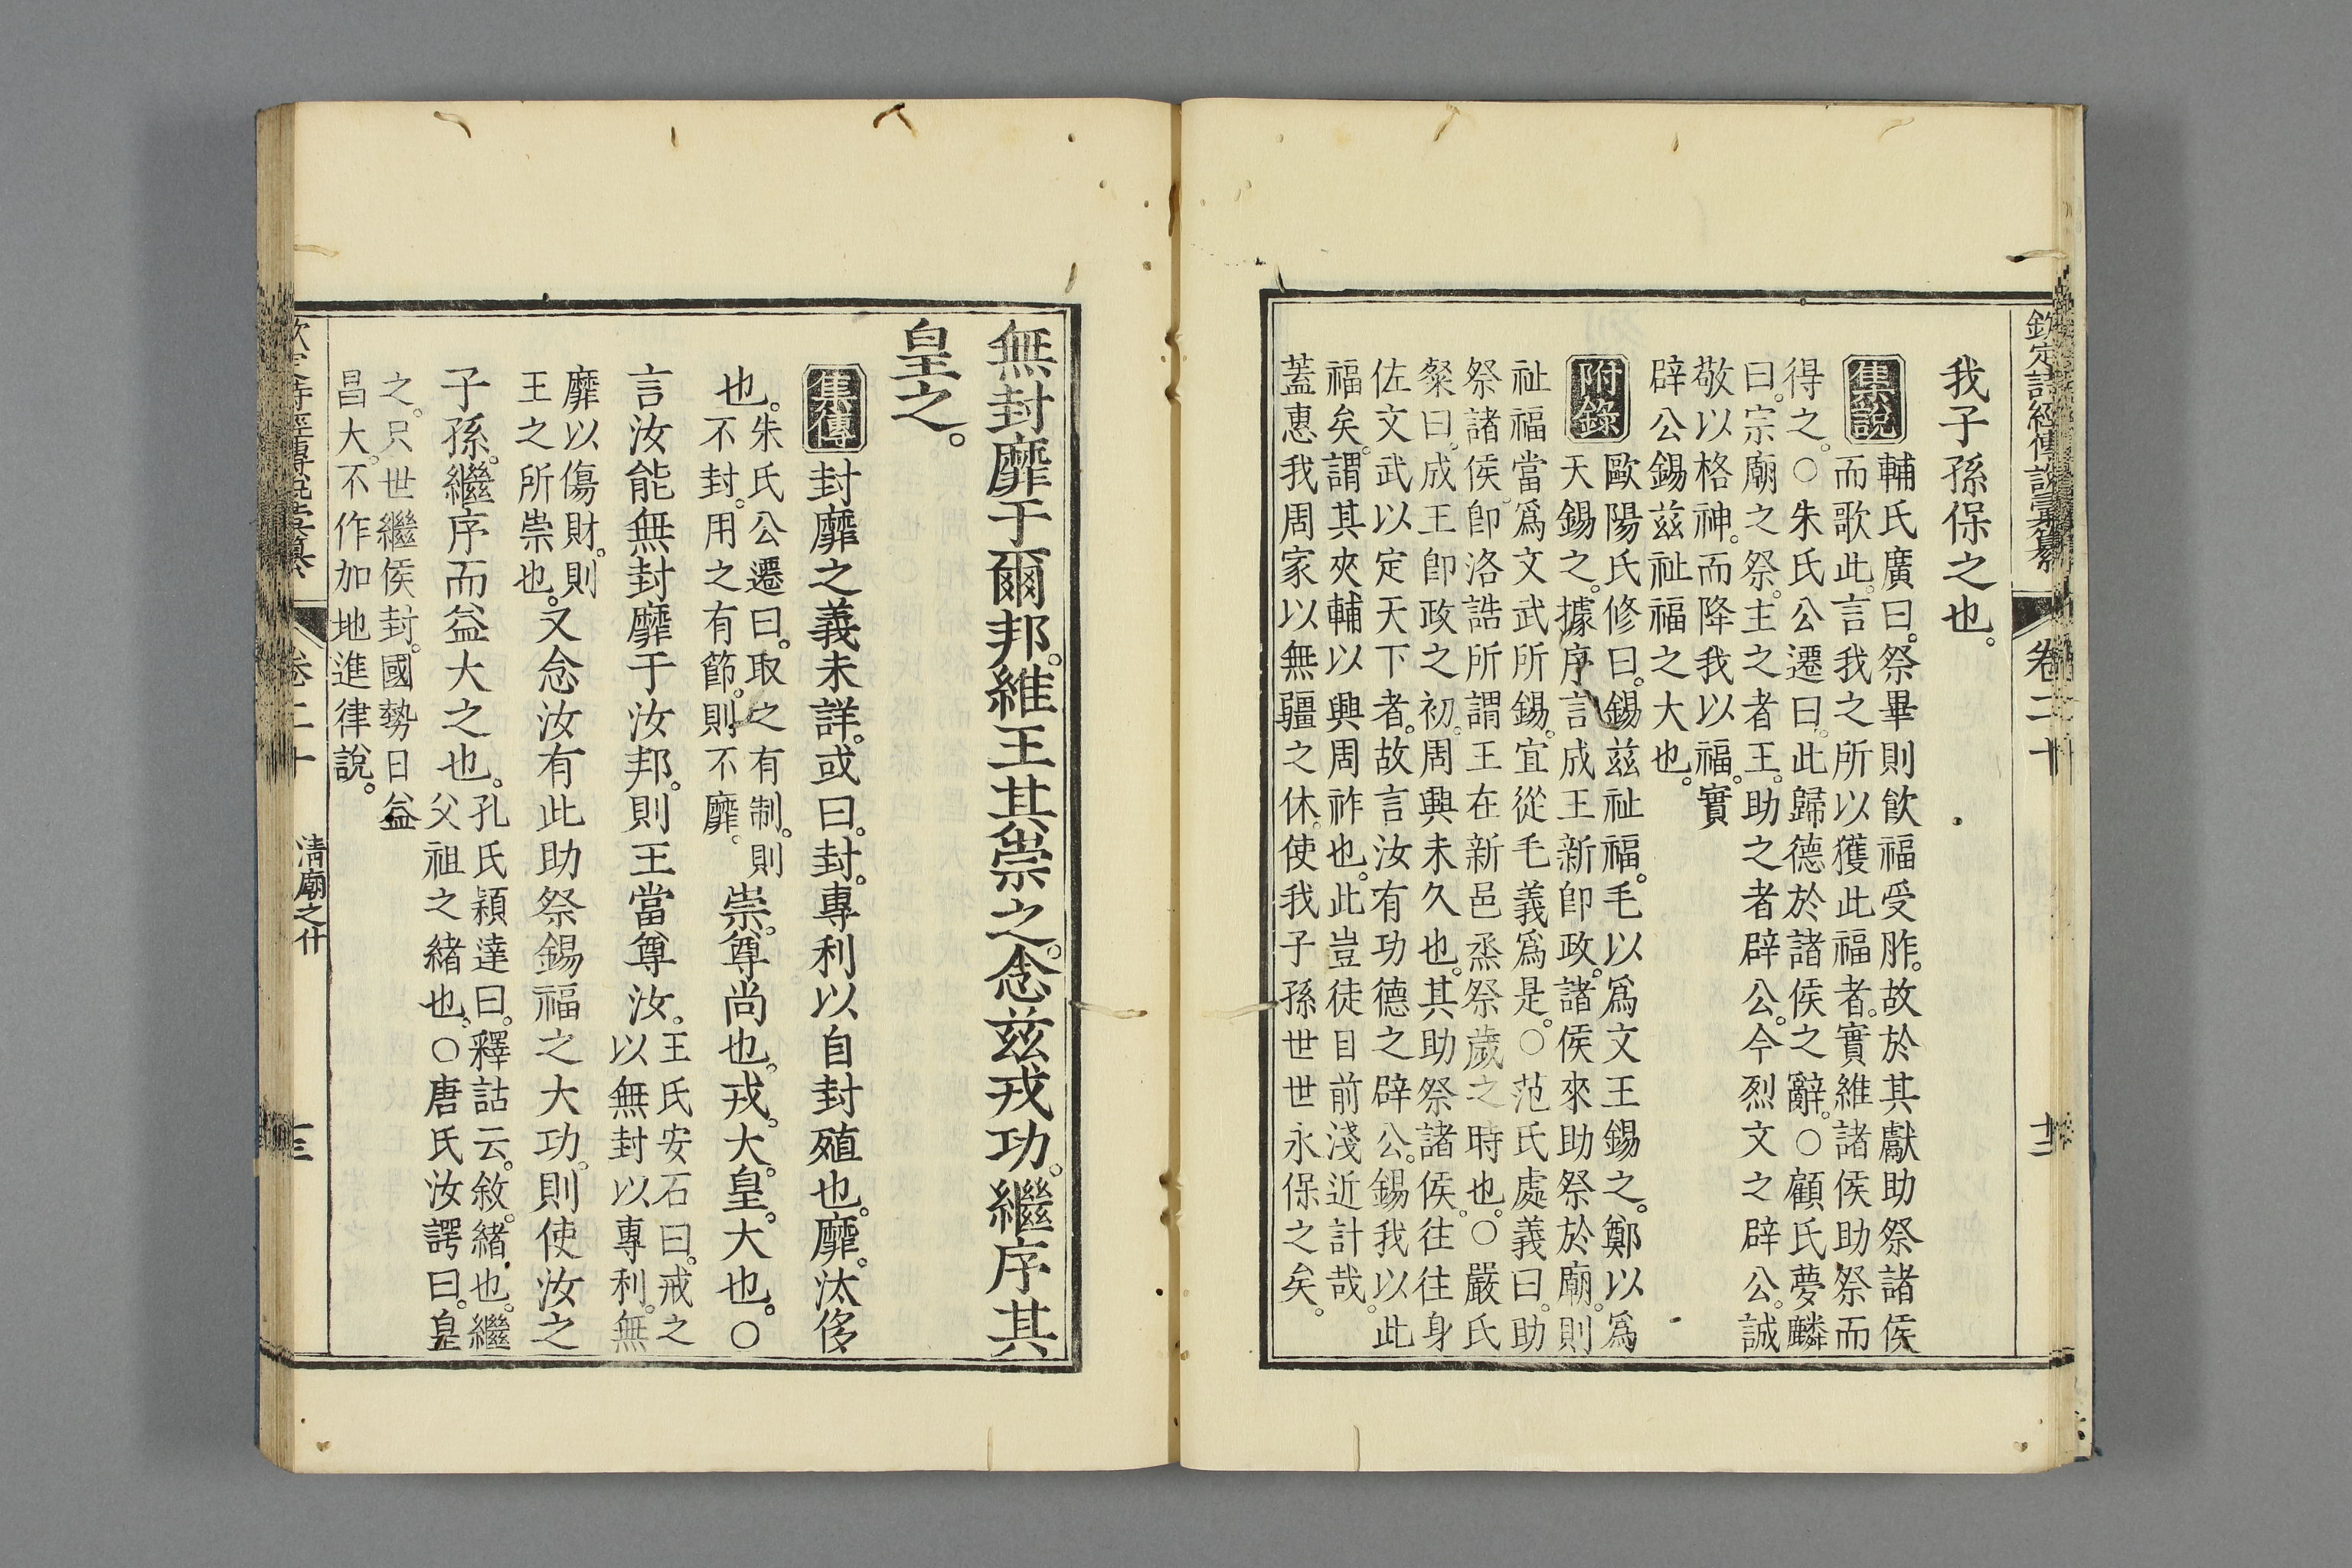 欽定詩經傳說彙纂 卷二十 十二
我子孫保之也。
集說 輔氏廣曰。祭畢則飲福受胙。故於其獻助祭諸侯
而歌此。言我之所以獲此福者。實維諸侯助祭而
得之。○朱氏公遷曰。此歸德於諸侯之辭。○顧氏夢麟
曰。宗廟之祭。主之者王。助之者辟公。今烈文之辟公。誠
敬以格神。而降我以福。實
辟公錫茲祉福之大也。
附錄 歐陽氏修曰。錫茲祉福。毛以爲文王錫之。鄭以爲
天錫之。據序言成王新卽政。諸侯來助祭於廟。則
祉福當爲文武所錫。宜從毛義爲是。○范氏處義曰。助
祭諸侯。卽洛誥所謂王在新邑烝祭歲之時也。○嚴氏
粲曰。成王卽政之初。周興未久也。其助祭諸侯。往往身
佐文武以定天下者。故言汝有功德之辟公。錫我以此
福矣。謂其夾輔以興周祚也。此豈徒目前淺近計哉。
蓋惠我周家以無疆之休。使我子孫世世永保之矣。
無封靡于爾邦。維王其崇之。念茲戎功。繼序其
皇之。
集傳 封靡之義未詳。或曰。封。專利以自封殖也。靡。汰侈
也。
朱氏公遷曰。取之有制。則
不封。用之有節。則不靡。
崇。尊尚也。戎。大。皇。大也。○
言汝能無封靡于汝邦。則王當尊汝。
王氏安石曰。戒之
以無封以專利。無
靡以傷財。則
王之所崇也。
又念汝有此助祭錫福之大功。則使汝之
子孫。繼序而益大之也。
孔氏穎達曰。釋詁云。敘。緒也。繼
父祖之緒也。○唐氏汝諤曰。皇
之。只世繼侯封。國勢日益
昌大。不作加地進律說。
欽定詩經傳說彙纂 卷二十 清廟之什 十三